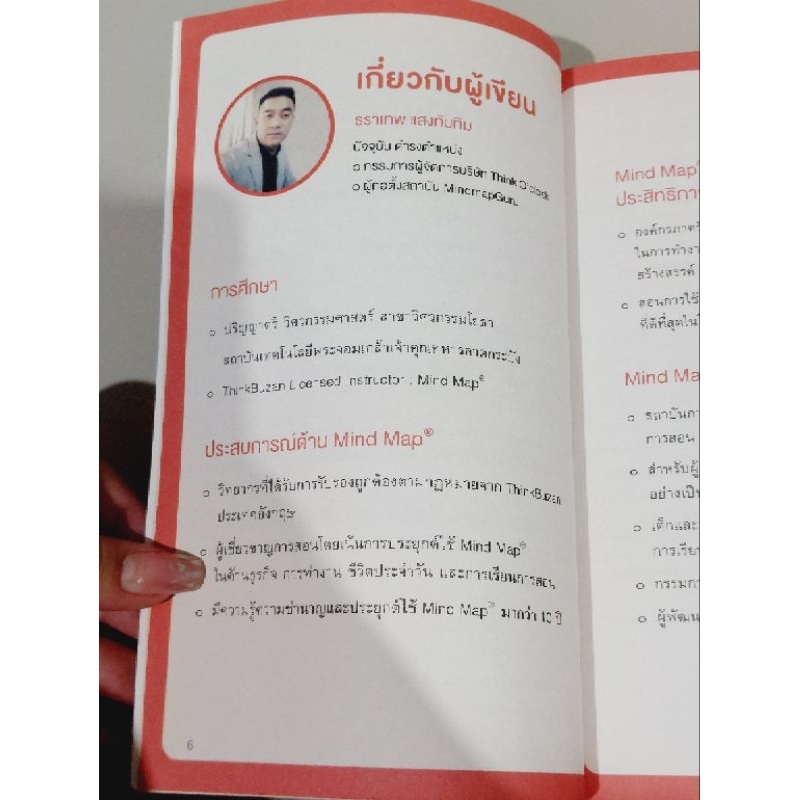 เกี่ยวกับผู้เขียน
ธราเทพ แสงทับทิม
ปัจจุบัน ดำรงตำแหน่ง
กรรมการผู้จัดการบริษัท Think O'clock
ผู้ก่อตั้งสถาบัน MindmapGuru
การศึกษา
ปริญญาตรี วิศวกรรมศาสตร์ สาขาวิศวกรรมโยธา
สถาบันเทคโนโลยีพระจอมเกล้าเจ้าคุณทหารลาดกระบัง
ThinkBuzan Licensed Instructor : Mind Map®
ประสบการณ์ด้าน Mind Map®
วิทยากรที่ได้รับการรับรองถูกต้องตามกฎหมายจาก ThinkBuzan
ประเทศอังกฤษ
ผู้เชี่ยวชาญการสอนโดยเน้นการประยุกต์ใช้ Mind Map®
ในด้านธุรกิจ การทำงาน ชีวิตประจำวัน และการเรียนการสอน
มีความรู้ความชำนาญและประยุกต์ใช้ Mind Map® มากว่า 10 ปี
6
Mind Map®
องค์กรภาครั
ในการทำงา
สร้างสรรค์
สอนการใช้
ที่ดีที่สุดใน
Mind Ma
สถาบันกา
การสอน
สำหรับผู้
อย่างเป็น
เด็กและ
การเรีย
กรรมกา
ผู้พัฒน